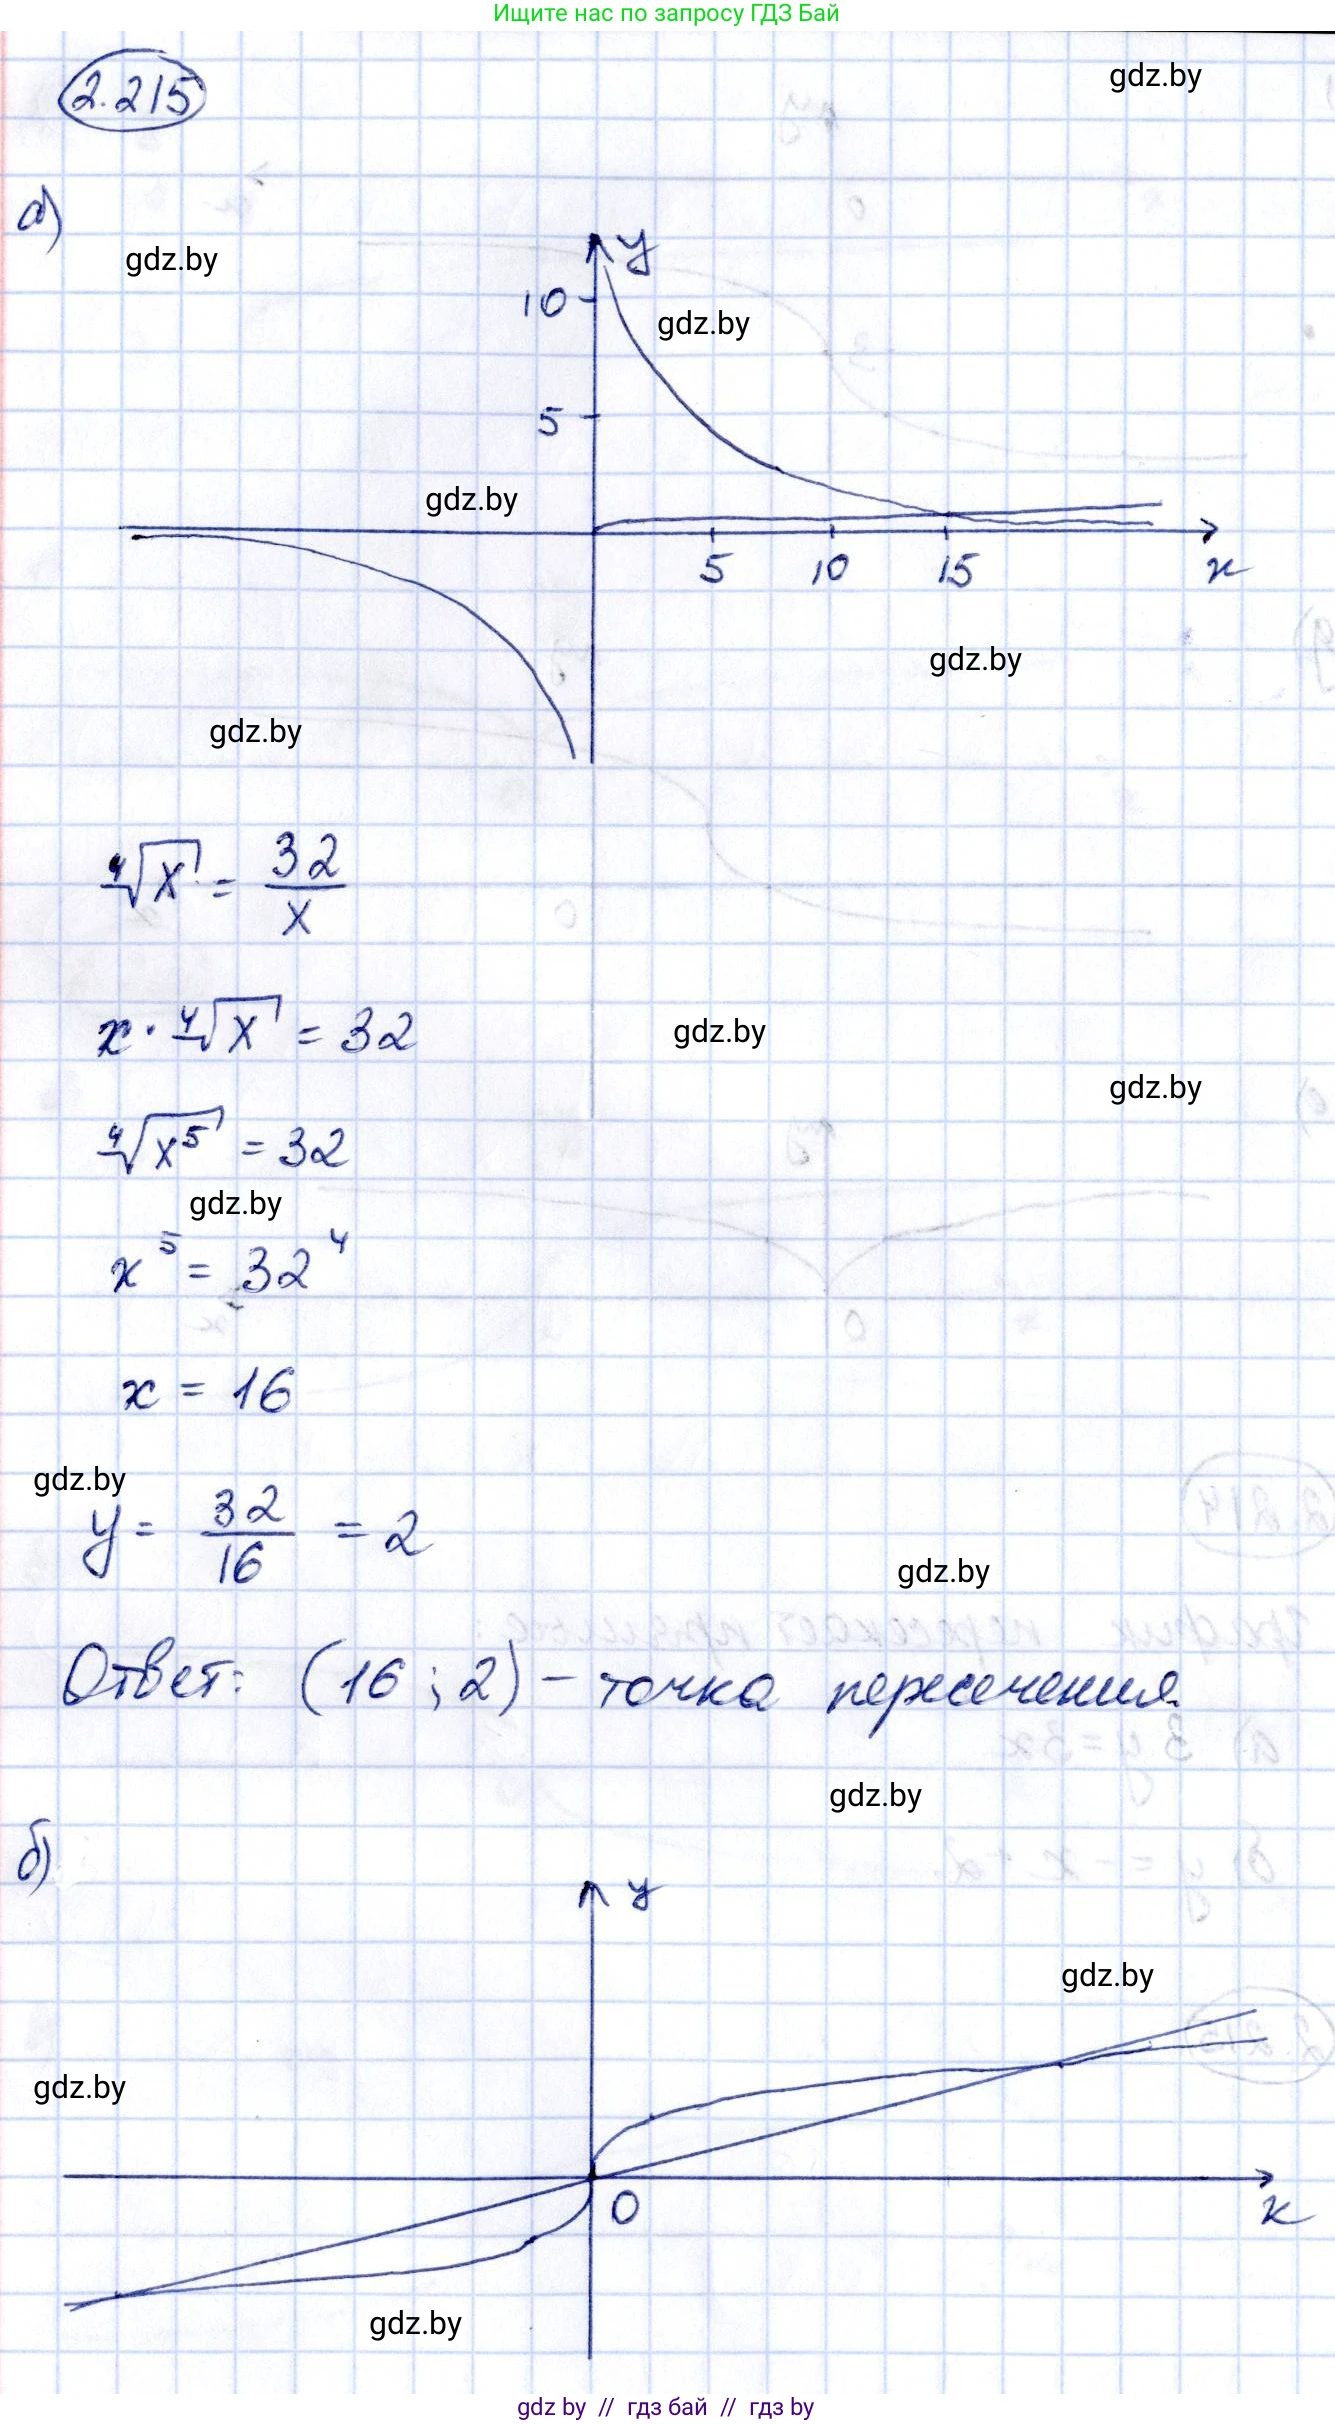 Ищите нас по запросу ГДЗ Бай
gdz.by
2.215
а)
gdz.by
y
10
gdz.by
5
gdz.by
5 10 15 x
gdz.by
gdz.by
⁴√x = 32/x
x · ⁴√x = 32
gdz.by
gdz.by
⁴√x⁵ = 32
gdz.by
x⁵ = 32⁴
x = 16
gdz.by
y = 32/16 = 2
gdz.by
Ответ: (16 ; 2) – точка пересечения.
gdz.by
б)
y
gdz.by
gdz.by
0 x
gdz.by
gdz by // гдз бай // гдз by